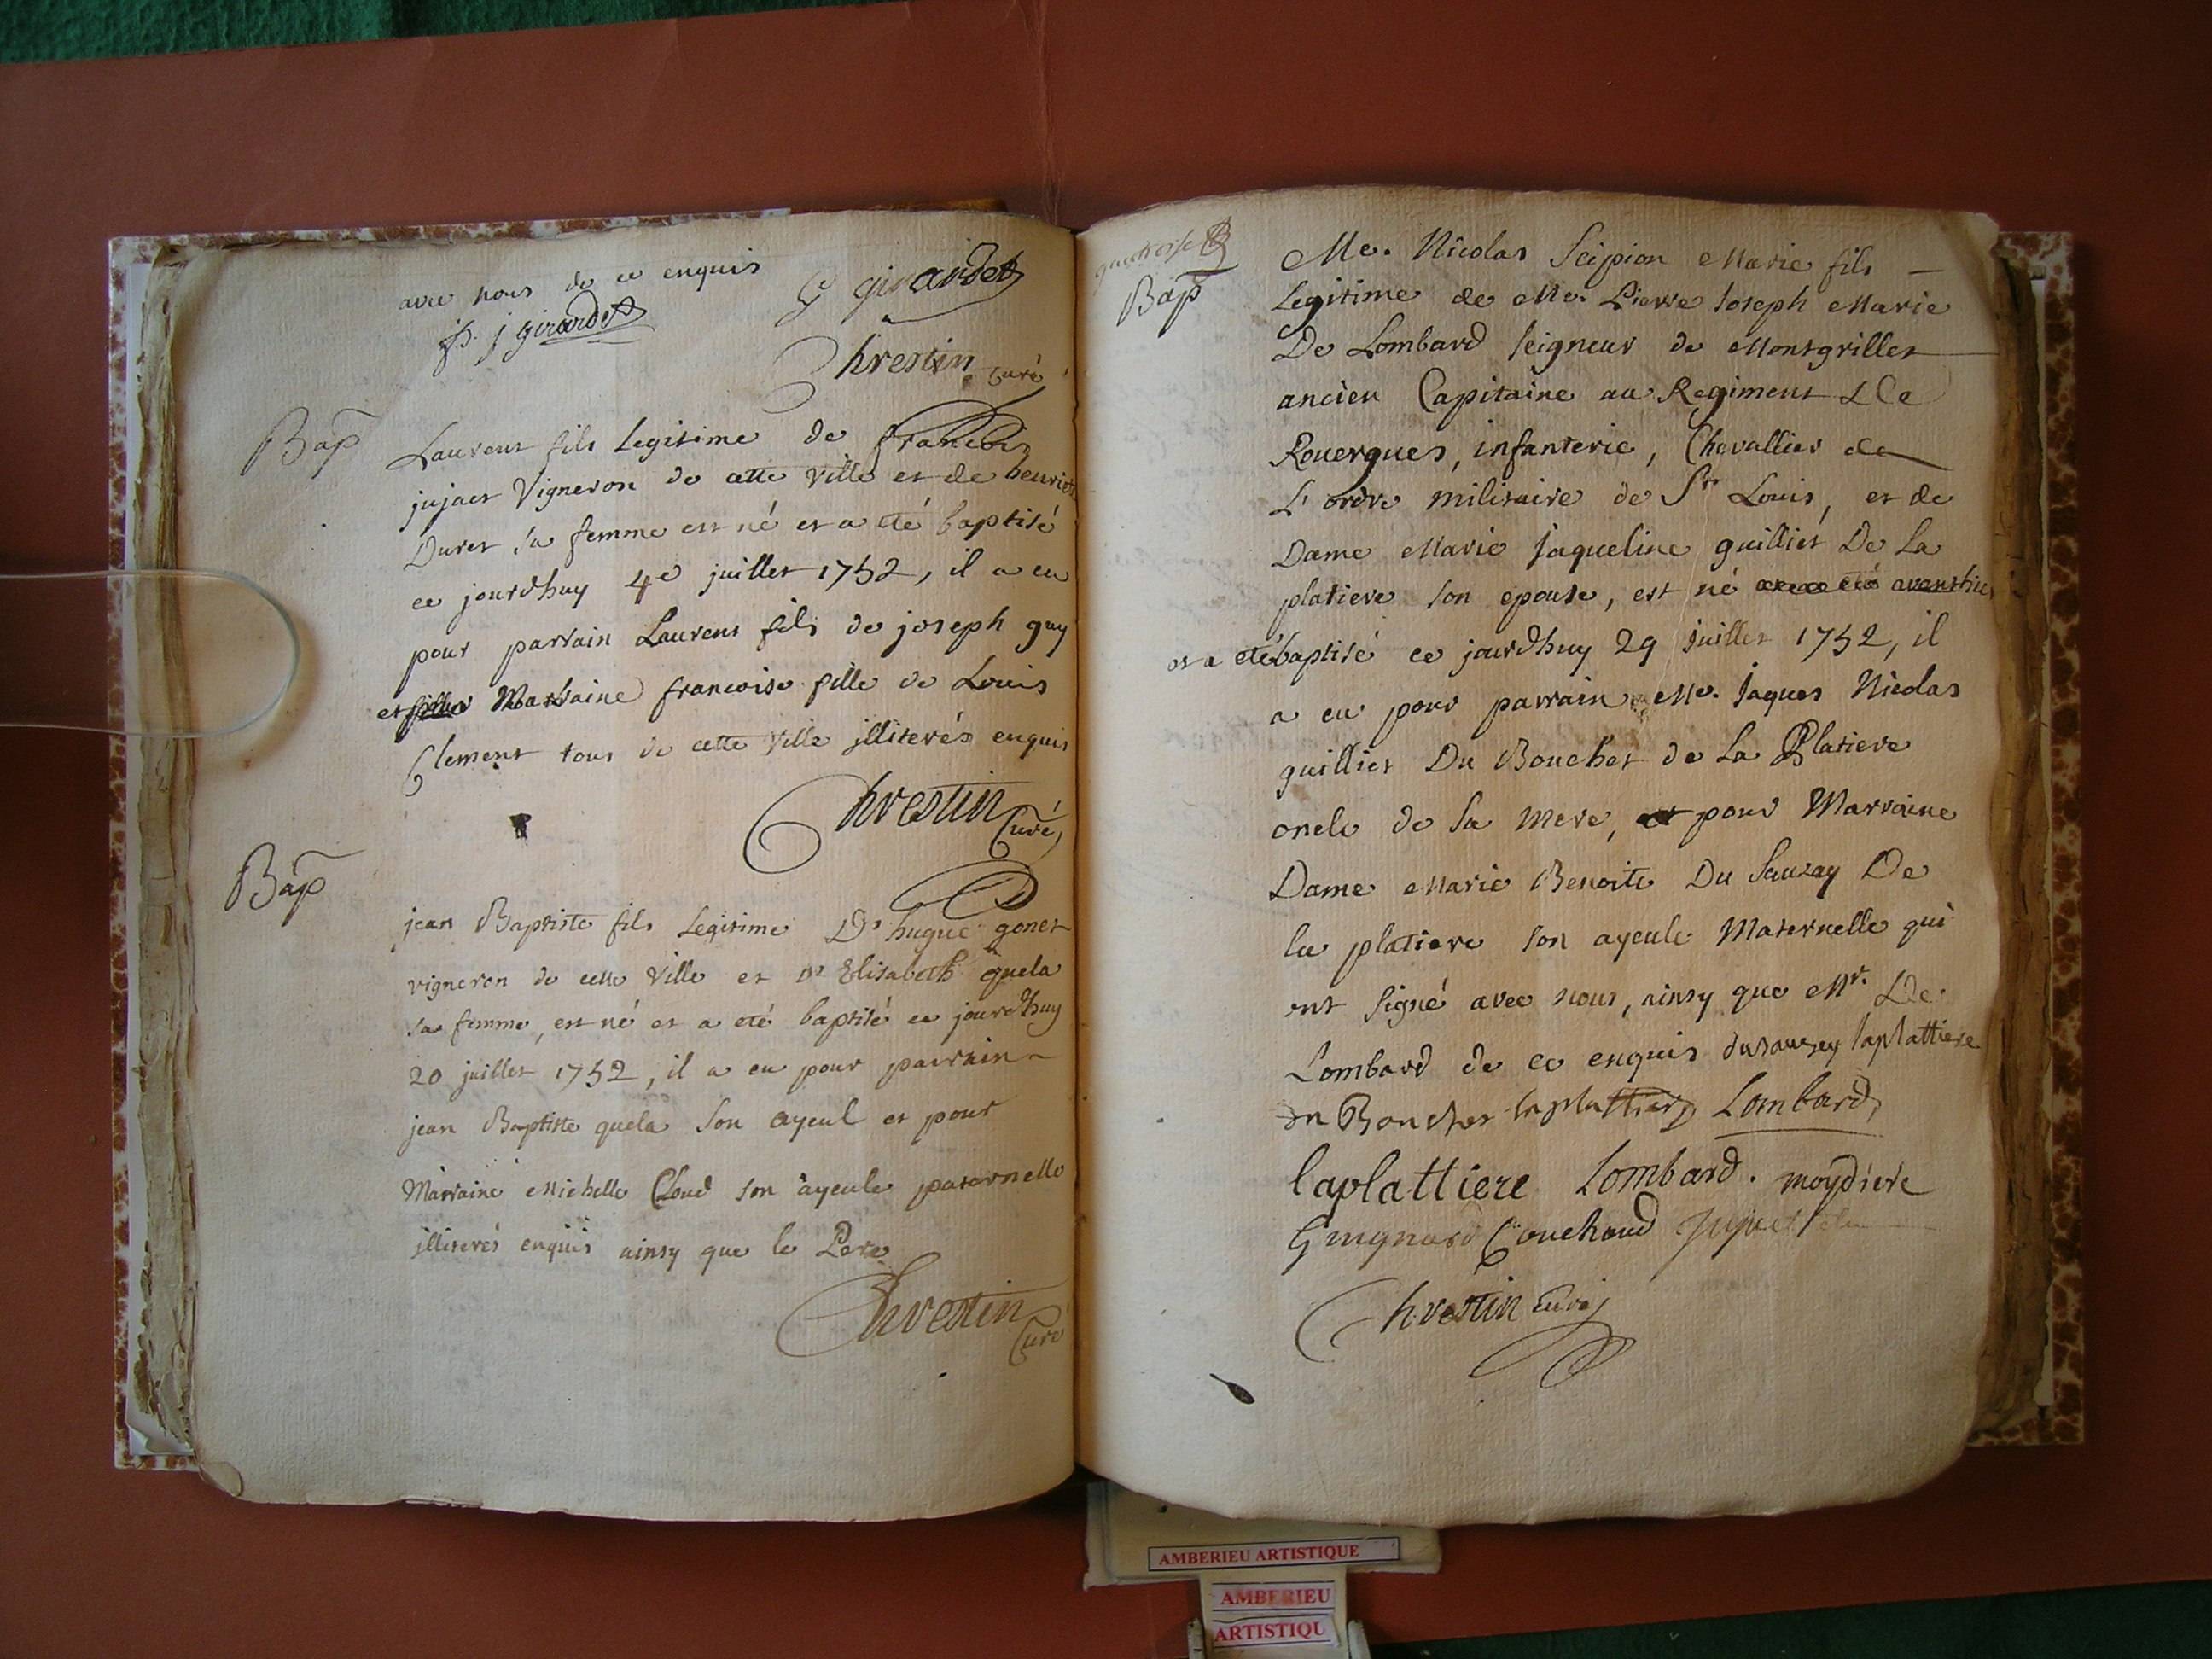 avec nous de ce enquis
girardet
p. j girardet
Chrestin Curé
Bap
Laurent fils Legitime de francois
jujaet Vigneron de cette ville et de henriet
Duret sa femme est né et a été baptisé
ce jourdhuy 4e juillet 1752, il a eu
pour parrain Laurent fils de joseph guy
et Marraine francoise fille de Louis
Clement tous de cette Ville illiterés enquis
Chrestin Curé
Bap
jean Baptiste fils Legitime Dr hugue gonet
vigneron de cette Ville et Dr Elisabeth quela
sa femme, est né et a eté baptisé ce jourdhuy
20 juillet 1752, il a eu pour parrain
jean Baptiste quela son ayeul et pour
Marraine Michelle Cloud son ayeule paternelle
illiterés enquis ainsy que le Pere
Chrestin Curé
Bap
Me. Nicolas Scipion Marie fils
Legitime de Me. Pierre Joseph Marie
De Lombard seigneur de Montgrillet
ancien Capitaine au Regiment De
Rouergues, infanterie, Chevallier de
L'ordre militaire de St Louis, et de
Dame Marie Jaqueline guilliet De La
platiere son epouse, est né
et a eté baptisé ce jourdhuy 29 juillet 1752, il
a eu pour parrain Me. Jaques Nicolas
guilliet Du Bouchet de La Platiere
oncle de sa mere, pour Marraine
Dame Marie Benoite Du Sauzay De
la platiere son ayeule Maternelle qui
ont signé avec nous, ainsy que Mr. De
Lombard de ce enquis dusauzey laplattiere
du Bouchet laplattiere Lombard
laplattiere Lombard. moydiere
Guignard Couchoud Jujaet
Chrestin Curé
AMBERIEU ARTISTIQUE
AMBERIEU
ARTISTIQU